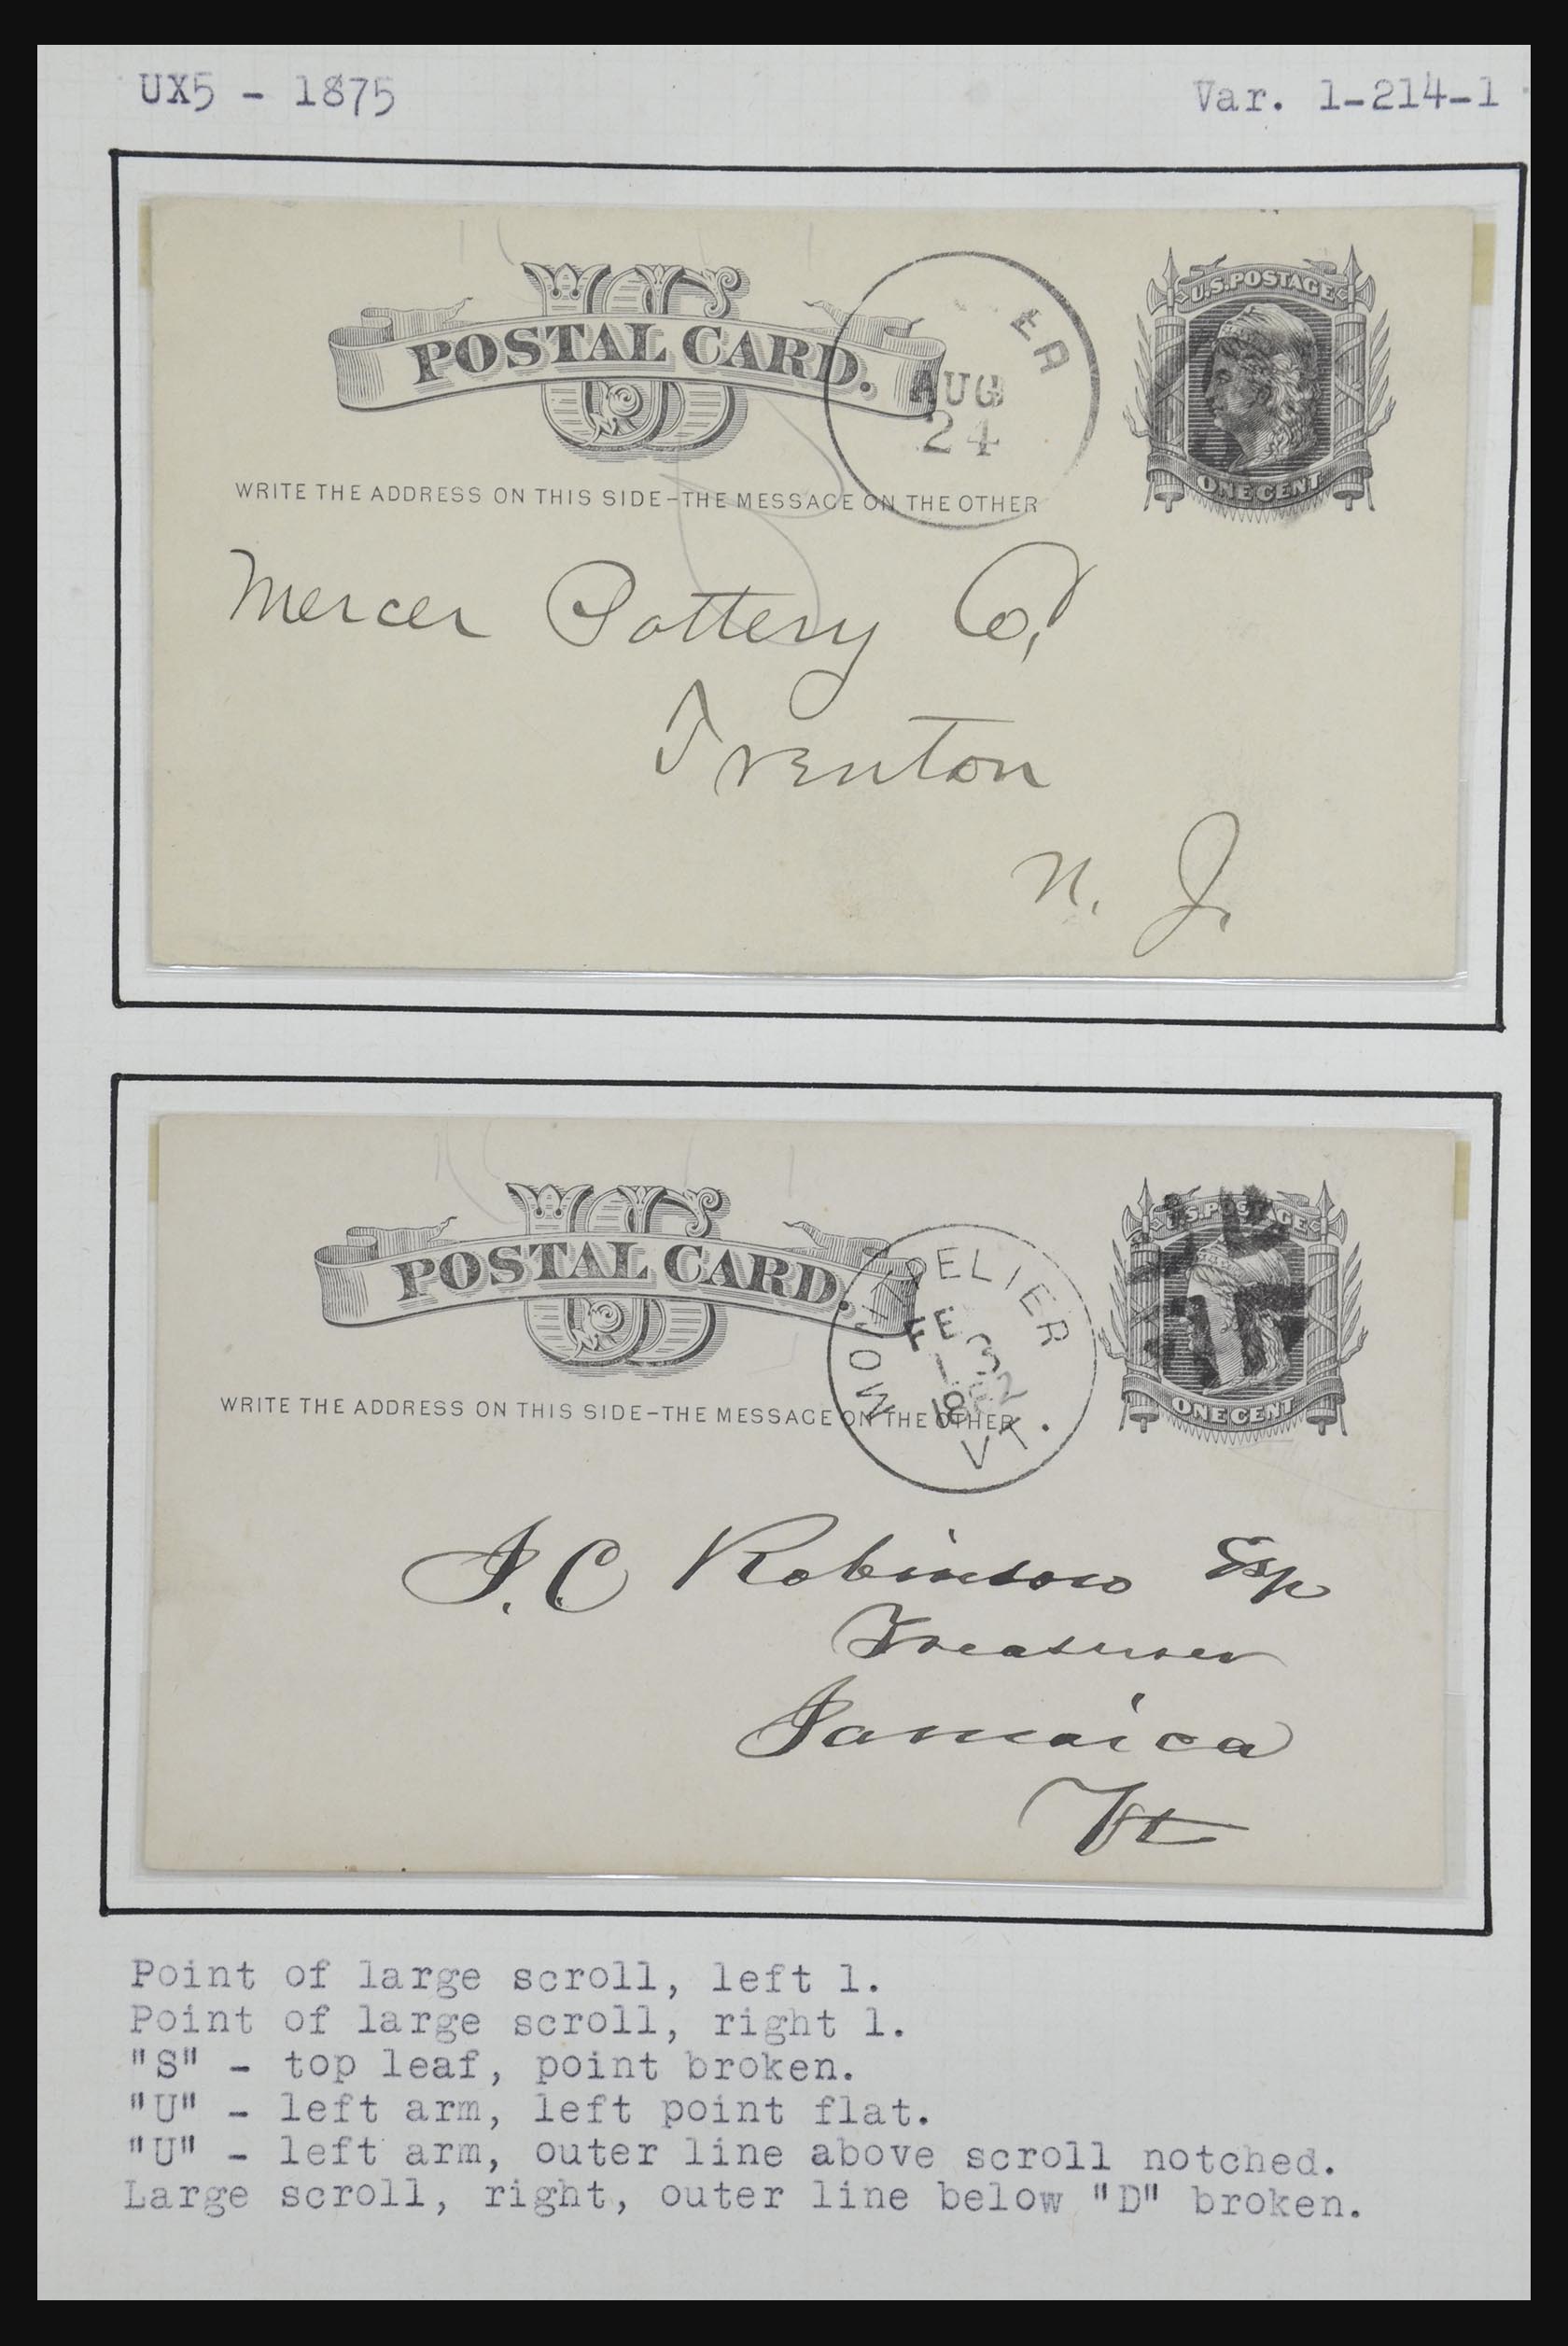 UX5 - 1875
Var. 1-214-1
US
POSTAL CARD.
ER
AUG
24
U.S. POSTAGE
ONE CENT
WRITE THE ADDRESS ON THIS SIDE-THE MESSAGE ON THE OTHER
Mercer Pottery Co,
Trenton
N. J.
US
POSTAL CARD.
MONTPELIER
FE
13
1882
VT.
U.S. POSTAGE
ONE CENT
WRITE THE ADDRESS ON THIS SIDE-THE MESSAGE ON THE OTHER
J. C Robinson Esq
Treasurer
Jamaica
Vt
Point of large scroll, left 1.
Point of large scroll, right 1.
"S" - top leaf, point broken.
"U" - left arm, left point flat.
"U" - left arm, outer line above scroll notched.
Large scroll, right, outer line below "D" broken.